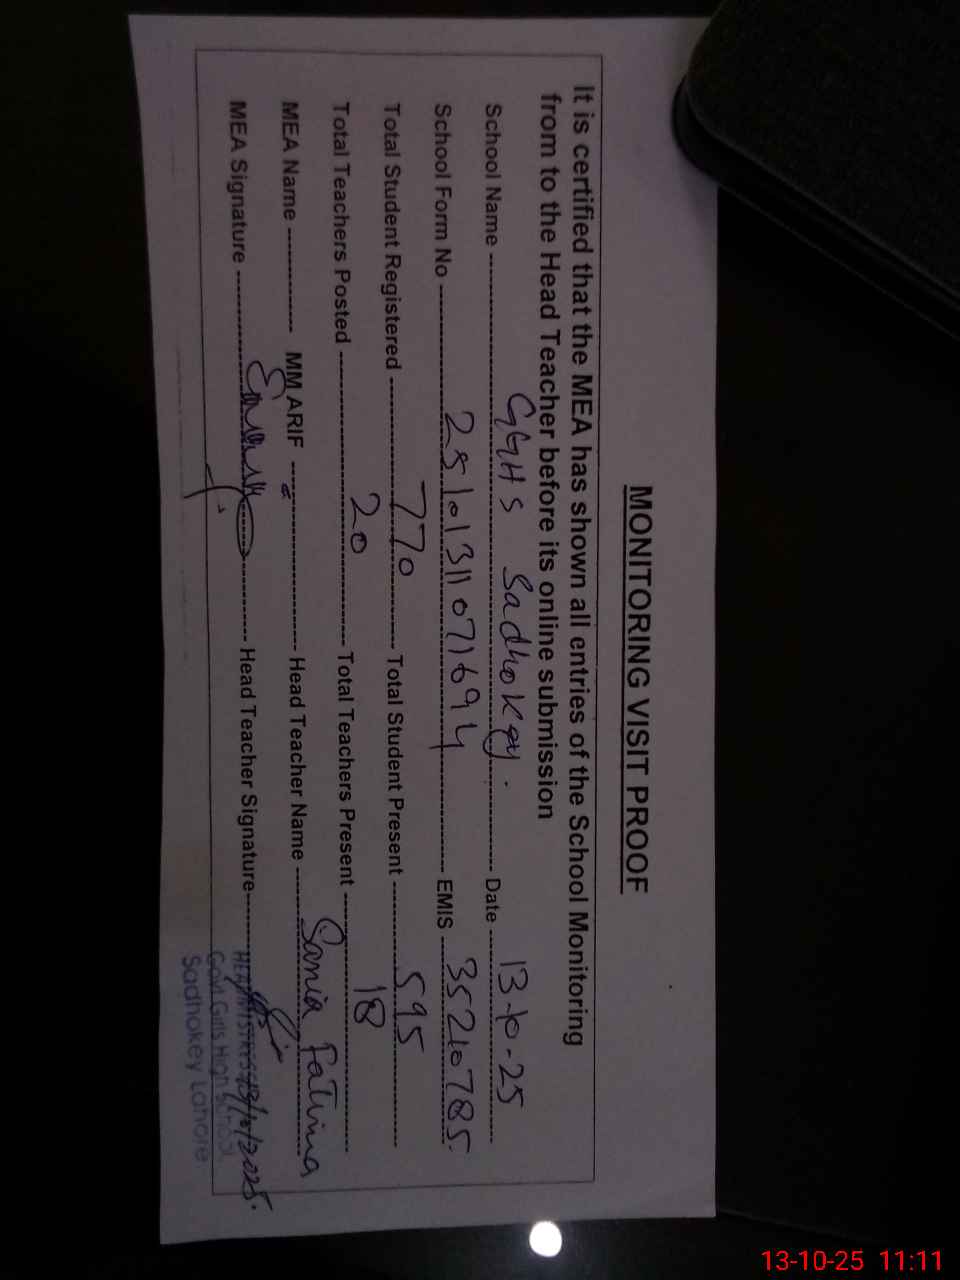 MONITORING VISIT PROOF
It is certified that the MEA has shown all entries of the School Monitoring
from to the Head Teacher before its online submission
School Name GGHS Sadhokey. Date 13-10-25
School Form No 251013110716944 EMIS 35210785
Total Student Registered 770 Total Student Present 595
Total Teachers Posted 20 Total Teachers Present 18
MEA Name MM ARIF Head Teacher Name Sania Fatima
MEA Signature Head Teacher Signature
HEADMISTRESS 13/10/2025.
Govt. Girls High School
Sadhokey Lahore
13-10-25 11:11